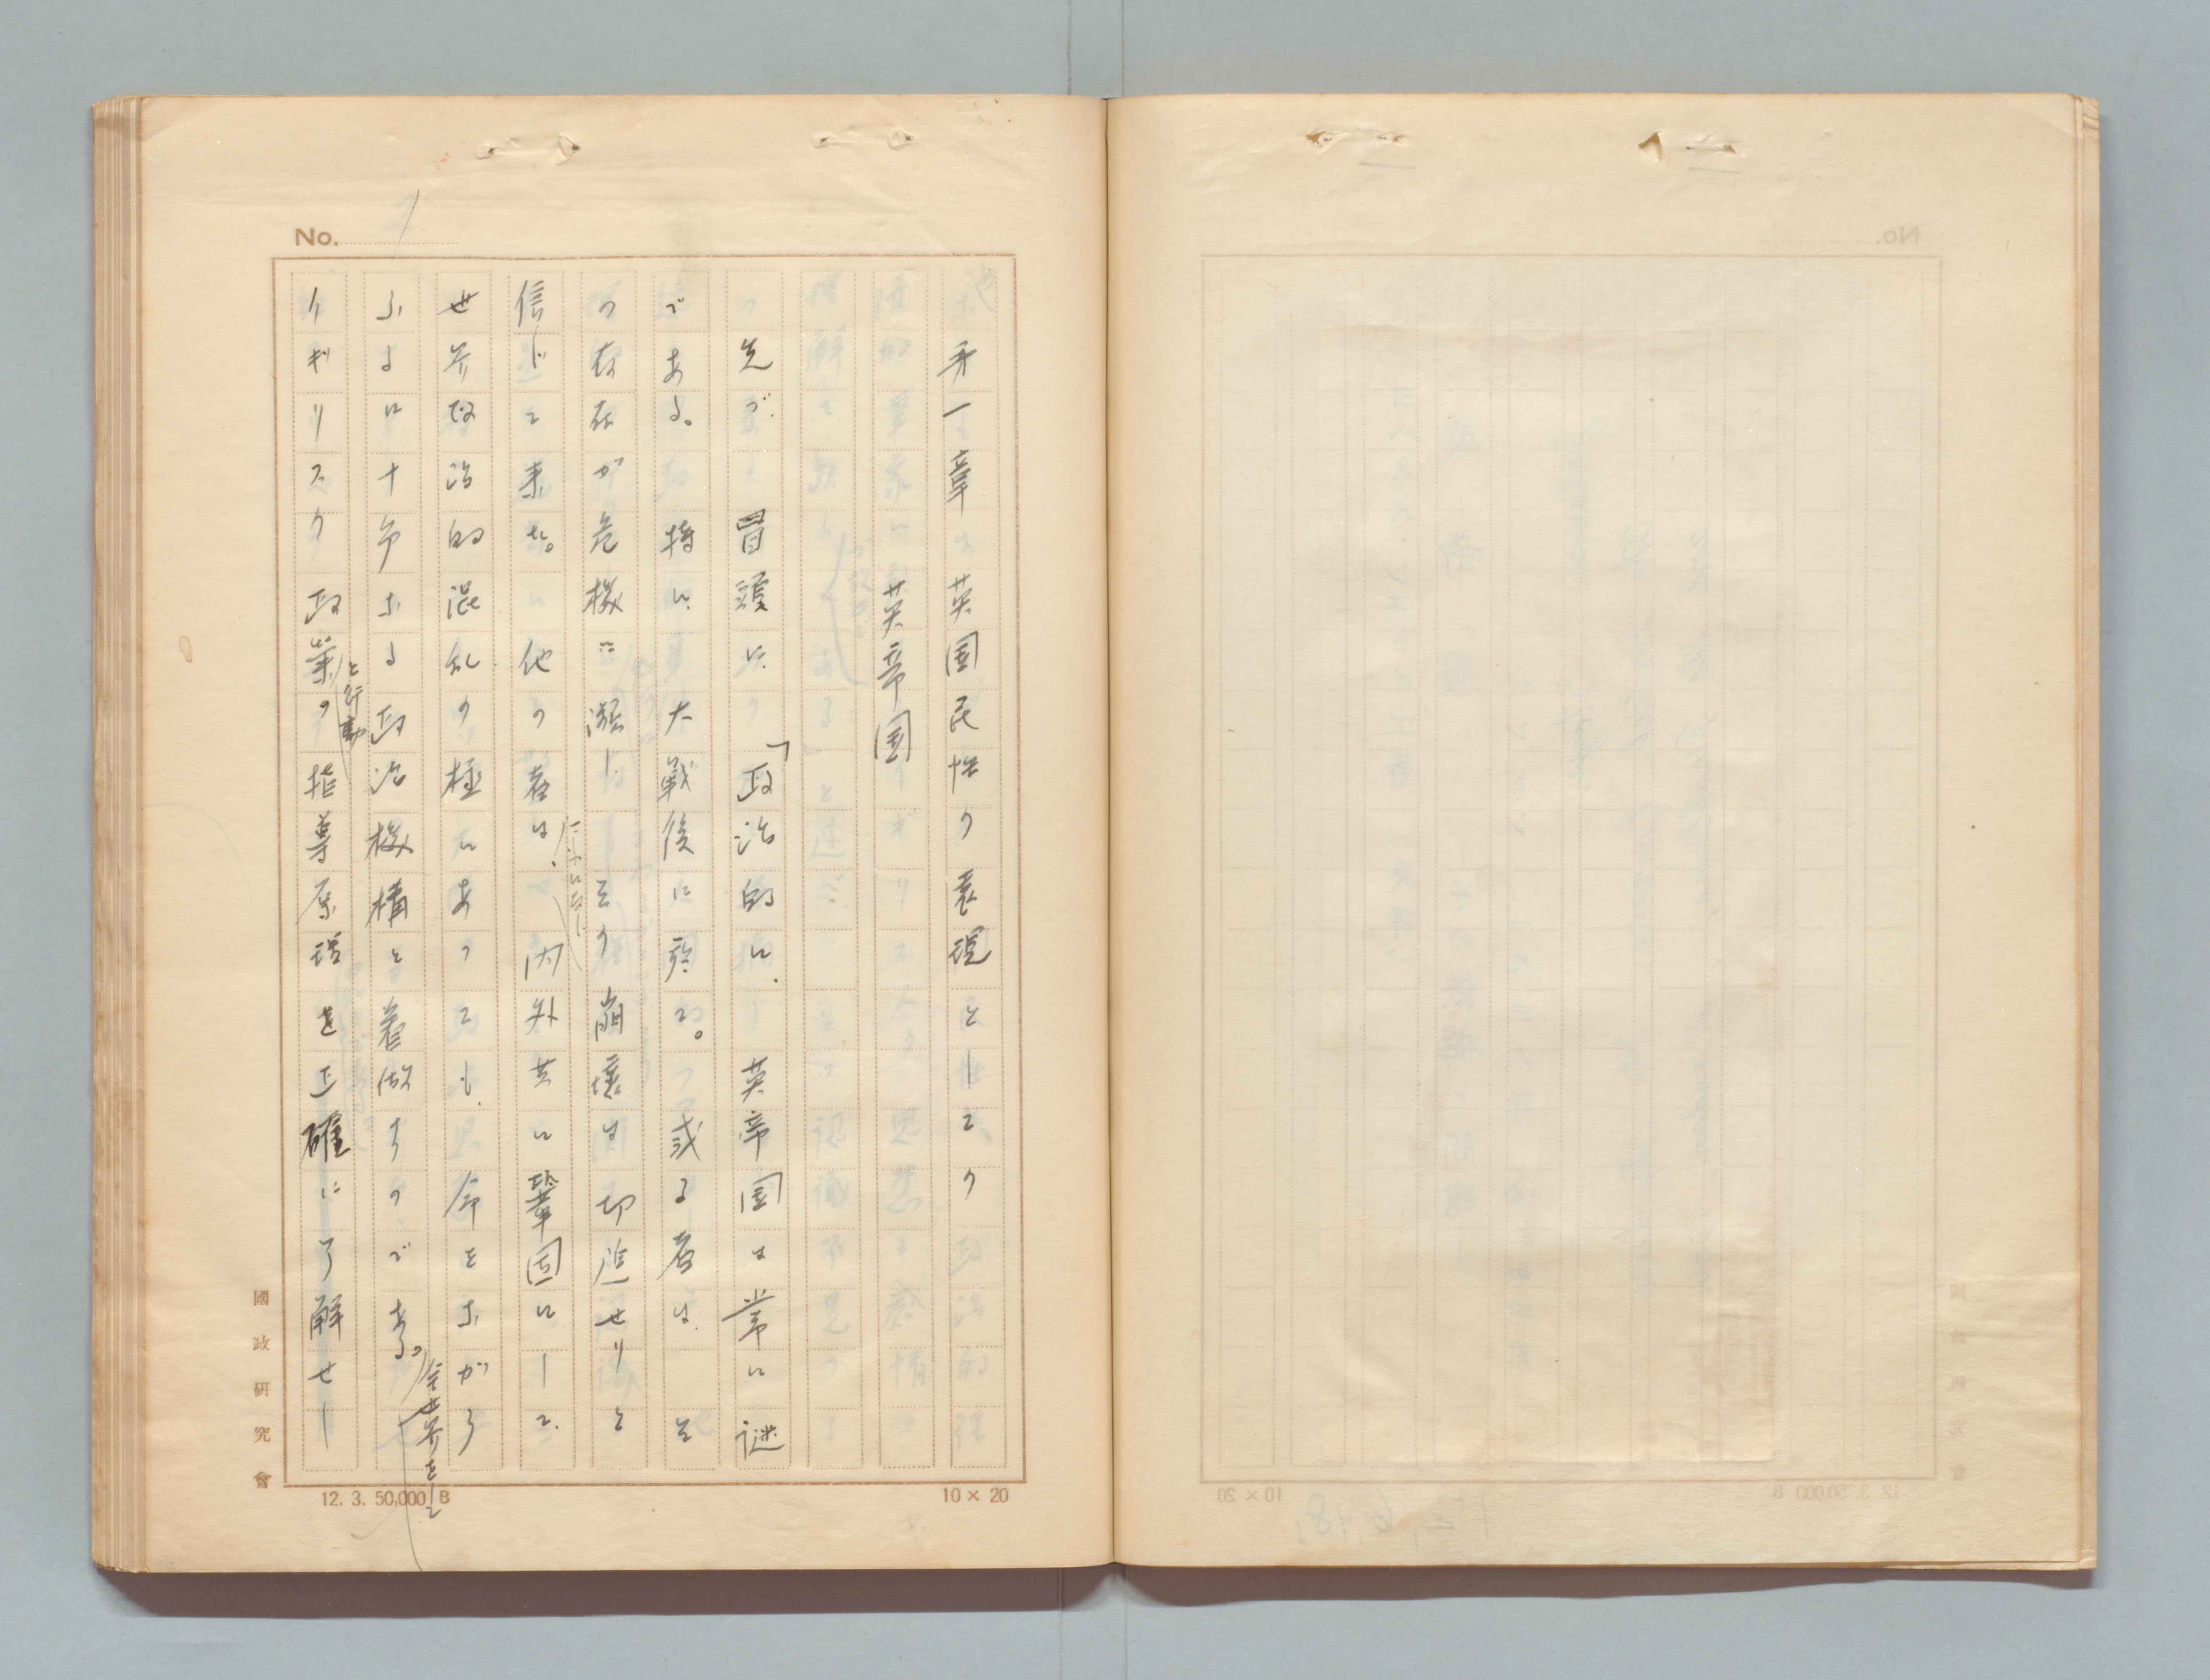 No. 1
第一章 英国民性の表現としての
英帝国
先づ冒頭に「政治的に、英帝国は常に謎
である。特に大戦後に於て。或る者は、そ
の存在が危機に瀕し、その崩壊は切迫せりと
信じて来た。他の者は、内外共に鞏固にして、
世界政治的混乱の極にあつても、今をながら
ふるに十分なる政治機構と看做すのである。
イギリスの政策の指導原理を正確に了解せし
と行動
全世界をして
國政研究會
12. 3. 50,000 B
10 × 20